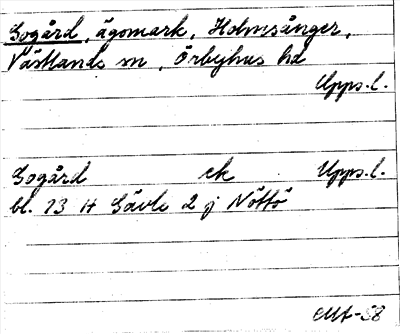 Sogård, ägomark, Holmsånger,
Västlands sn, Örbyhus hd
Upps.l.
Sogård ek Upps.l.
bl. 13 H Gävle 2 j Nöttö